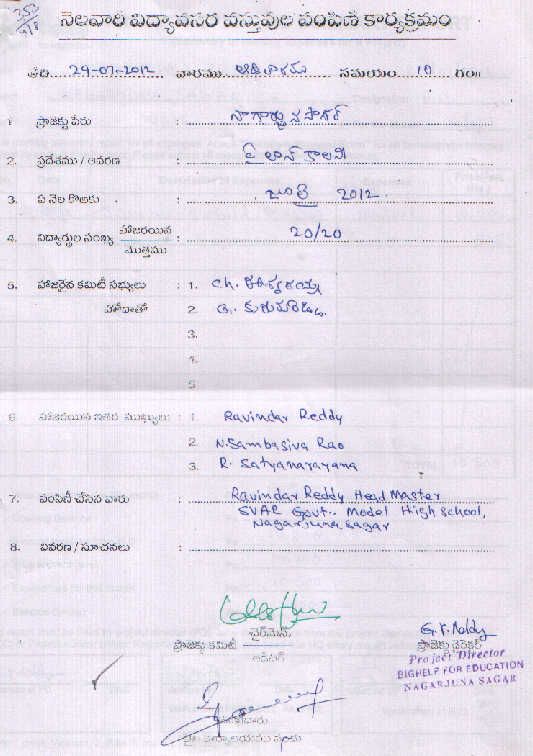 నెలవారీ విద్యావసర వస్తువుల పంపిణీ కార్యక్రమం
తేది 29-07-2012 వారము ఆదివారము సమయం 10 గం॥
1. ప్రాజెక్టు పేరు : నాగార్జున సాగర్
2. ప్రదేశము / ఆవరణ : పైలాన్ కాలనీ
3. ఏ నెల కొఱకు : జులై 2012
4. విద్యార్థుల సంఖ్య హాజరయిన : 20/20
మొత్తము
5. హాజరైన కమిటీ సభ్యులు : 1. Ch.
హోదాతో 2. G.
3.
4.
5
6 హాజరయిన ఇతర ముఖ్యులు : 1. Ravindar Reddy
2. N.Sambasiva Rao
3. R. Satyanarayana
7. పంపిణీ చేసిన వారు : Ravindar Reddy Head Master
SVAR Govt. Model High School,
Nagarjuna Sagar
8. వివరణ / సూచనలు :
చైర్‌మెన్
ప్రాజెక్టు కమిటీ
ఆడిటర్
G.K. Reddy
ప్రాజెక్టు డైరెక్టర్
Project Director
BIGHELP FOR EDUCATION
NAGARJUNA SAGAR